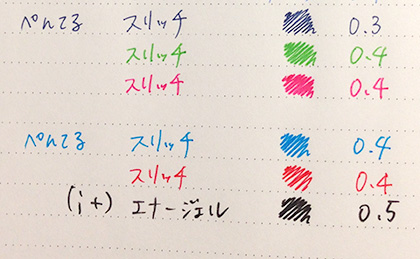 ぺんてる スリッチ 0.3
スリッチ 0.4
スリッチ 0.4
ぺんてる スリッチ 0.4
スリッチ 0.4
(i+) エナージェル 0.5